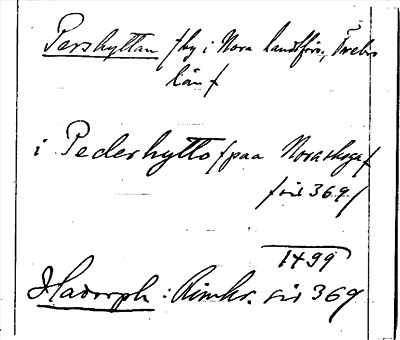 Pershyttan /by i Nora landsförs., Örebro
län/
i Pederhytto /paa Noraskoga/
/sid 369/
1499
Hadorph: Rimkr. sid 369